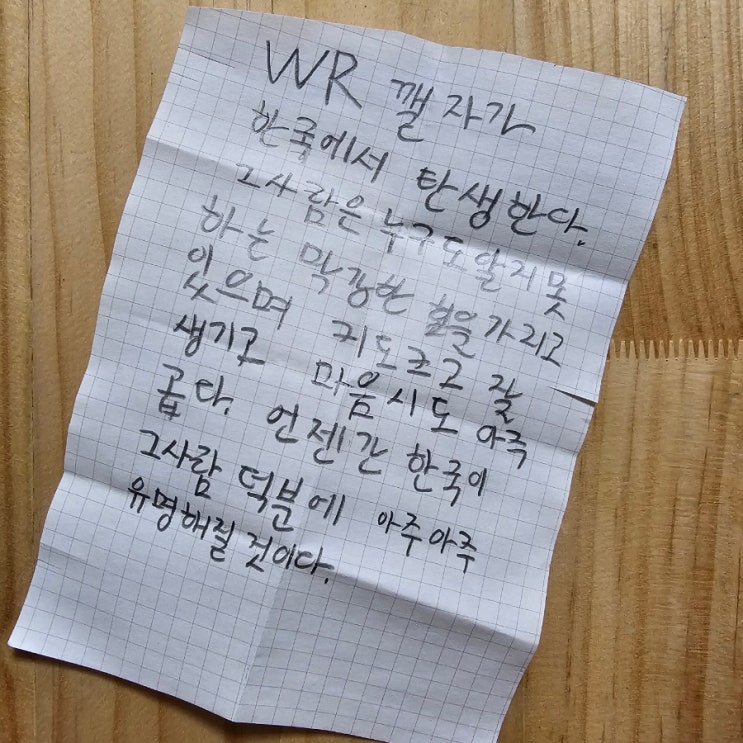 WR 깰 자가
한국에서 탄생한다.
그사람은 누구도알지못
하는 막강한 힘을가리고
있으며 키도크고 잘
생기고 마음시도 아주
곱다. 언젠간 한국이
그사람 덕분에 아주아주
유명해질것이다.